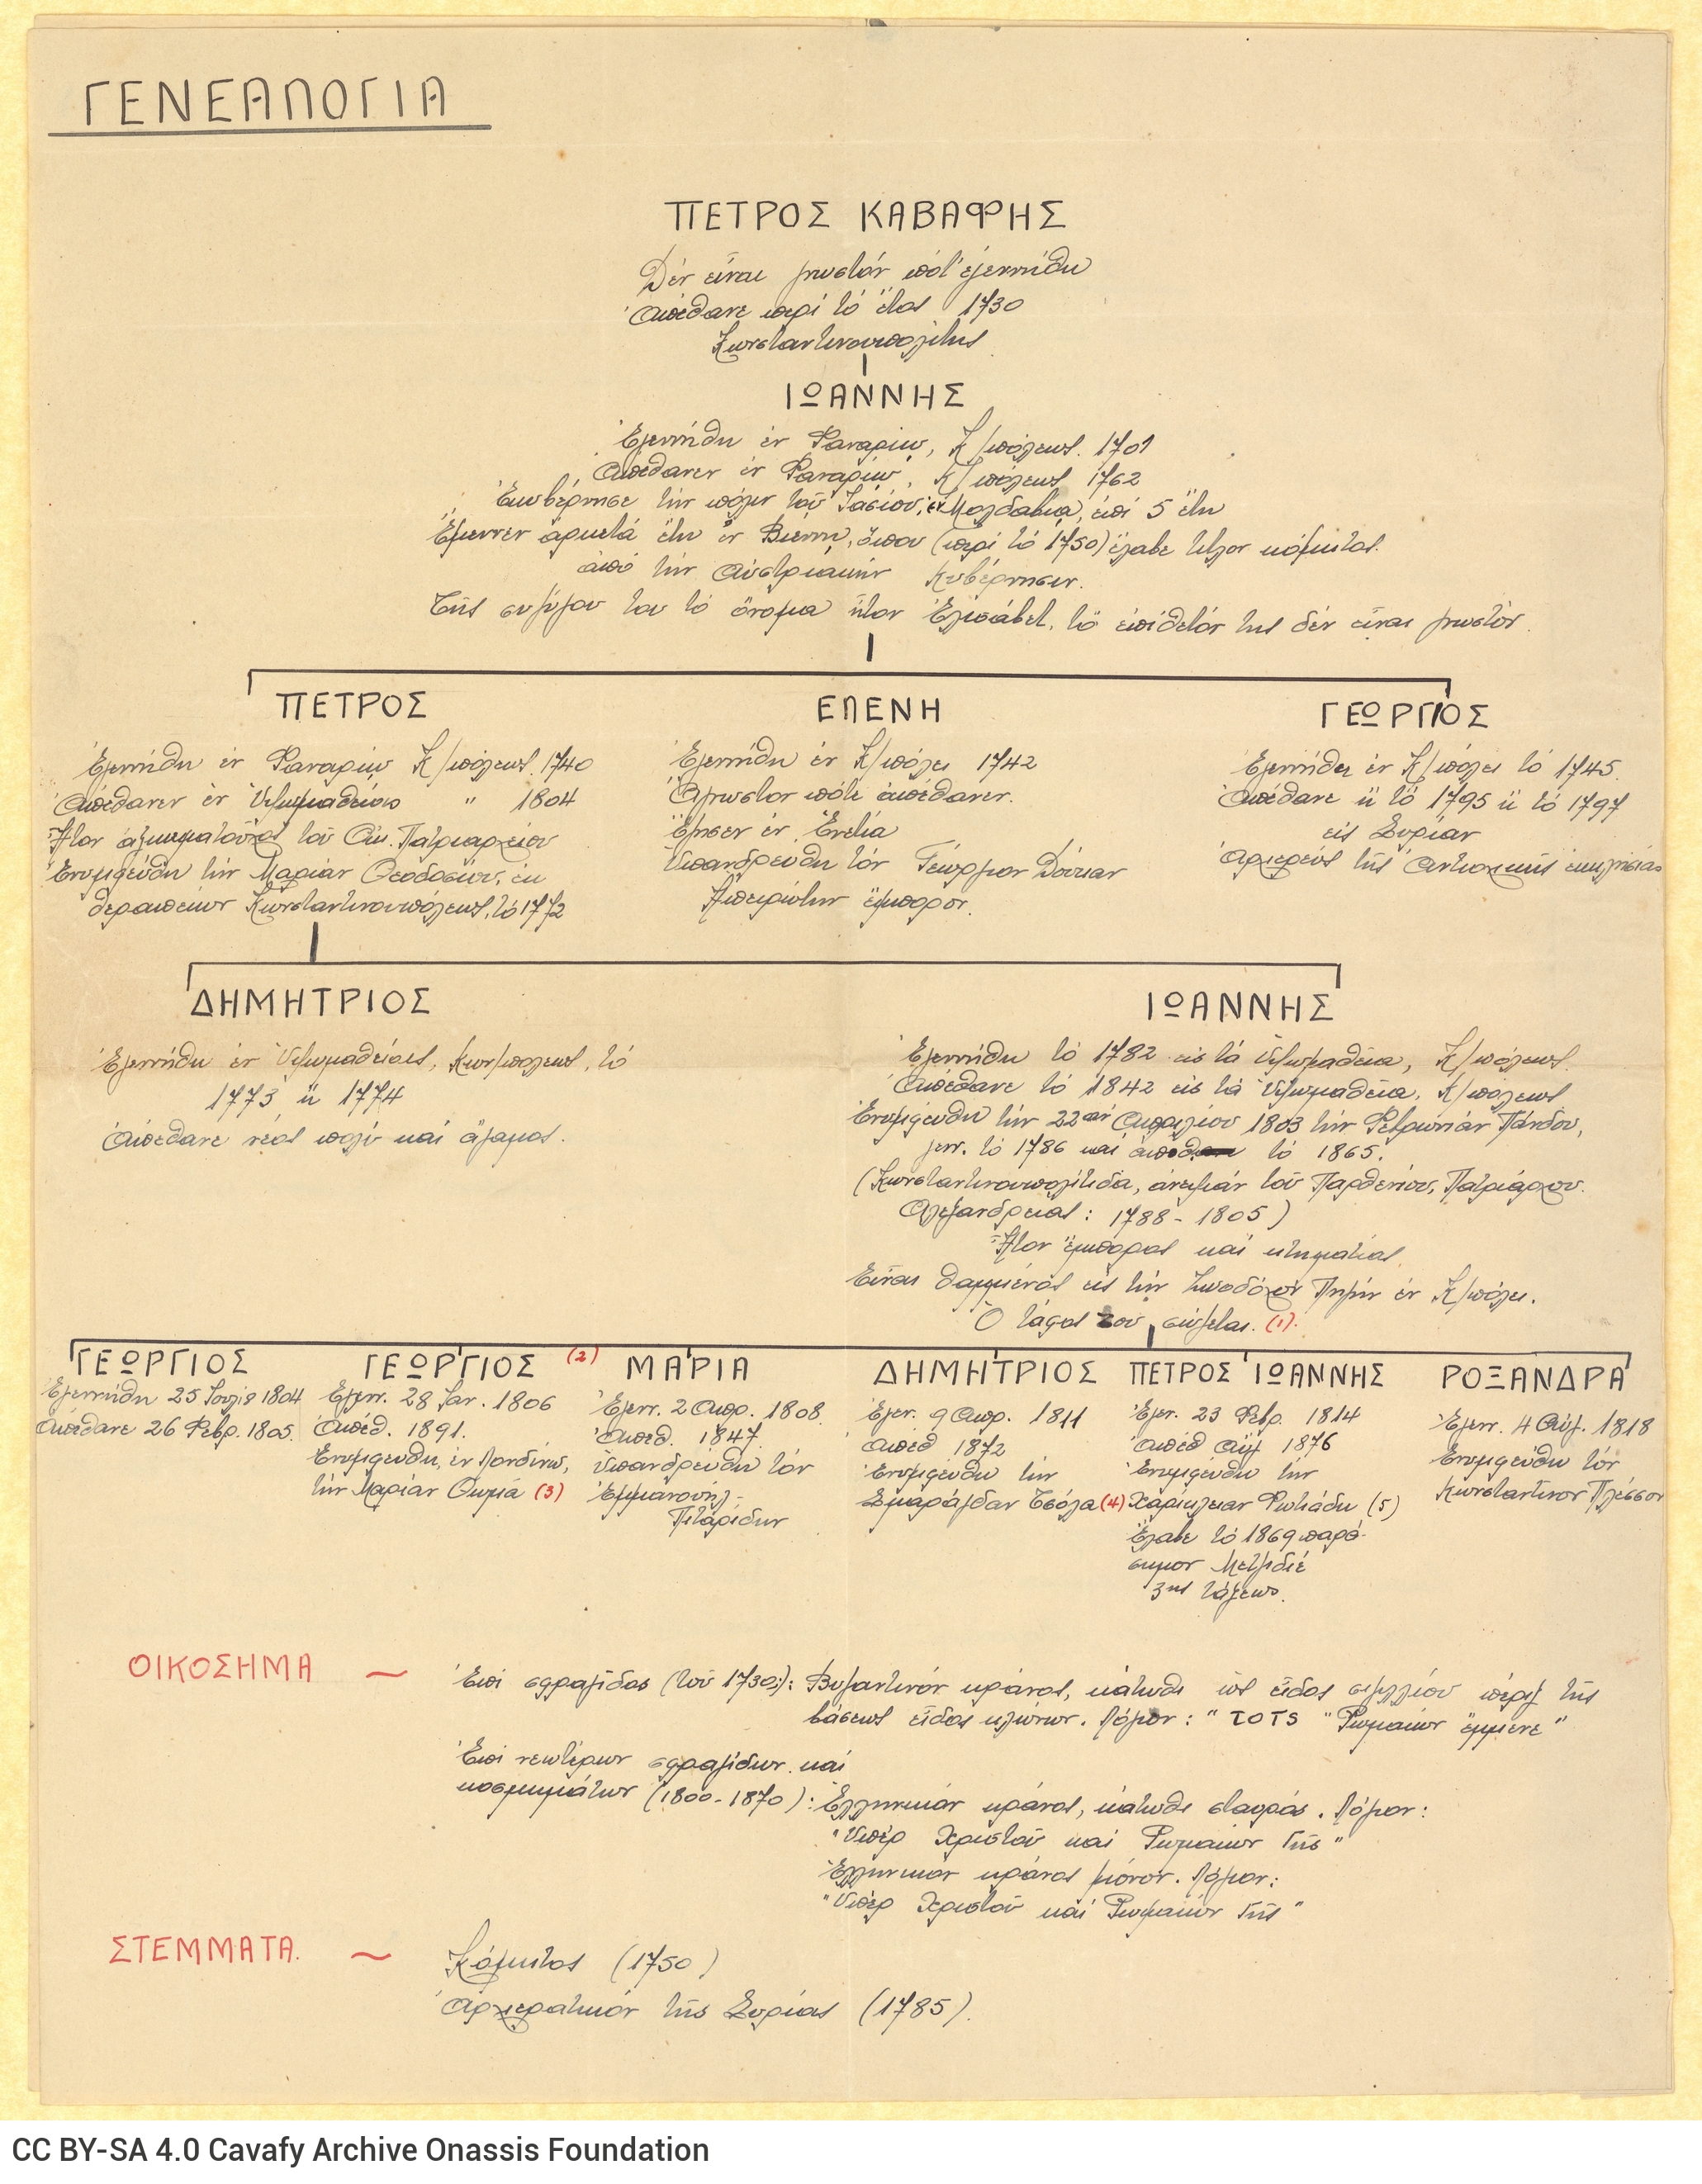 ΓΕΝΕΑΛΟΓΙΑ
ΠΕΤΡΟΣ ΚΑΒΑΦΗΣ
Δέν εἶναι γνωστόν πότ' ἐγεννήθη
Ἀπέθανε περί τό ἔτος 1730
Κωνσταντινουπολίτης
ΙΩΑΝΝΗΣ
Ἐγεννήθη ἐν Φαναρίῳ, Κ/πόλεως. 1701
Ἀπέθανεν ἐν Φαναρίῳ, Κ/πόλεως 1762
Ἐκυβέρνησε τήν πόλιν τοῦ Ἰασίου, ἐν Μολδαβίᾳ, ἐπί 5 ἔτη
Ἔμεινεν ἀρκετά ἔτη ἐν Βιέννῃ, ὅπου (περί τό 1750) ἔλαβε τίτλον κόμητος.
ἀπό τήν Αὐστριακήν κυβέρνησιν.
Τῆς συζύγου του τό ὄνομα ἦτον Ἐλισάβετ, τό ἐπίθετόν της δέν εἶναι γνωστόν.
ΠΕΤΡΟΣ ΕΛΕΝΗ ΓΕΩΡΓΙΟΣ
Ἐγεννήθη ἐν Φαναρίῳ Κ/πόλεως. 1740
Ἀπέθανεν ἐν Ὑψωμαθείοις " 1804
Ἦτον ἀξιωματοῦχος τοῦ Οἰκ. Πατριαρχείου
Ἐνυμφεύθη τήν Μαρίαν Θεοδοσίου, ἐκ
Θεραπειῶν Κωνσταντινουπόλεως, τό 1772
Ἐγεννήθη ἐν Κ/πόλει 1742
Ἄγνωστον πότε ἀπέθανεν.
Ἔζησεν ἐν Ἐνετίᾳ
Ὑπανδρεύθη τόν Γεώργιον Δούκαν
Ἠπειρώτην ἔμπορον.
Ἐγεννήθη ἐν Κ/πόλει τό 1745.
Ἀπέθανε ἤ τό 1795 ἤ τό 1797
εἰς Συρίαν
Ἀρχιερεύς τῆς Ἀντιοχικῆς ἐκκλησίας
ΔΗΜΗΤΡΙΟΣ ΙΩΑΝΝΗΣ
Ἐγεννήθη ἐν Ὑψωμαθείοις, Κων/πόλεως, τό
1773 ἤ 1774
Ἀπέθανε νέος πολύ καί ἄγαμος.
Ἐγεννήθη τό 1782 εἰς τά Ὑψωμαθεῖα, Κ/πόλεως.
Ἀπέθανε τό 1842 εἰς τά Ὑψωμαθεῖα, Κ/πόλεως
Ἐνυμφεύθη τήν 22αν Ἀπριλίου 1803 τήν Φεβρωνίαν Πάνδου,
γενν. τό 1786 καί ἀποθ. τό 1865.
(Κωνσταντινουπολίτιδα, ἀνεψιάν τοῦ Παρθενίου, Πατριάρχου.
Ἀλεξανδρείας: 1788 - 1805)
Ἦτον ἔμπορος καί κτηματίας.
Εἶναι θαμμένος εἰς τήν Ζωοδόχον Πηγήν ἐν Κ/πόλει.
Ὁ τάφος του σώζεται. (1).
ΓΕΩΡΓΙΟΣ ΓΕΩΡΓΙΟΣ (2) ΜΑΡΙΑ ΔΗΜΗΤΡΙΟΣ ΠΕΤΡΟΣ ΙΩΑΝΝΗΣ ΡΟΞΑΝΔΡΑ
Ἐγεννήθη 25 Ἰουλίου 1804
Ἀπέθανε 26 Φεβρ. 1805.
Ἐγενν. 28 Ἰαν. 1806
Ἀπέθ. 1891.
Ἐνυμφεύθη, ἐν Λονδίνῳ,
τήν Μαρίαν Θωμᾶ (3)
Ἐγενν. 2 Ἀπρ. 1808.
Ἀπέθ. 1847.
Ὑπανδρεύθη τόν
Ἐμμανουήλ-
Πιταρίδην
Ἐγεν. 9 Ἀπρ. 1811
Ἀπέθ 1872
Ἐνυμφεύθη τήν
Σμαράγδαν Τσόλα (4)
Ἐγεν. 23 Φεβρ. 1814
Ἀπέθ Αὔγ 1876
Ἐνυμφεύθη τήν
Χαρίκλειαν Φωτιάδη (5)
Ἔλαβε τό 1869 παρά-
σημον Μετζιδιέ
3ης τάξεως.
Ἐγενν. 4 Αὐγ. 1818
Ἐνυμφεύθη τόν
Κωνσταντῖνον Πλέσσον
ΟΙΚΟΣΗΜΑ ~ Ἐπί σφραγῖδος (τοῦ 1730;): Βυζαντινόν κράνος, κάτωθι ὡς εἶδος σιγιλλίου πέριξ τῆς
βάσεως εἶδος κλώνων. Λόγιον: "ΤΟΤΣ "Ρωμαίων ἔμμενε"
Ἐπί νεωτέρων σφραγίδων καί
κοσμημάτων (1800-1870): Ἑλληνικόν κράνος, κάτωθι σταυρός. Λόγιον:
"Ὑπέρ Χριστοῦ καί Ρωμαίων Γῆς"
Ἑλληνικόν κράνος μόνον. Λόγιον:
"Ὑπέρ Χριστοῦ καί Ρωμαίων Γῆς"
ΣΤΕΜΜΑΤΑ. ~ Κόμητος (1750)
Ἀρχιερατικόν τῆς Συρίας (1785).
CC BY-SA 4.0 Cavafy Archive Onassis Foundation